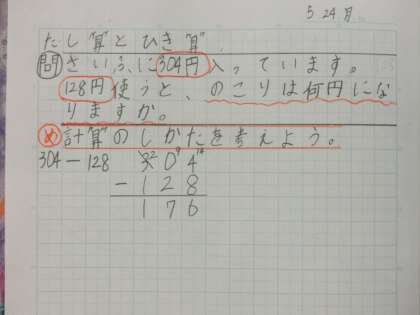 5 24 月
たし算とひき算
問 さいふに304円入っています。
128円使うと、のこりは何円にな
りますか。
め 計算のしかたを考えよう。
304-128 3 2 0 9 4 14
- 1 2 8
1 7 6